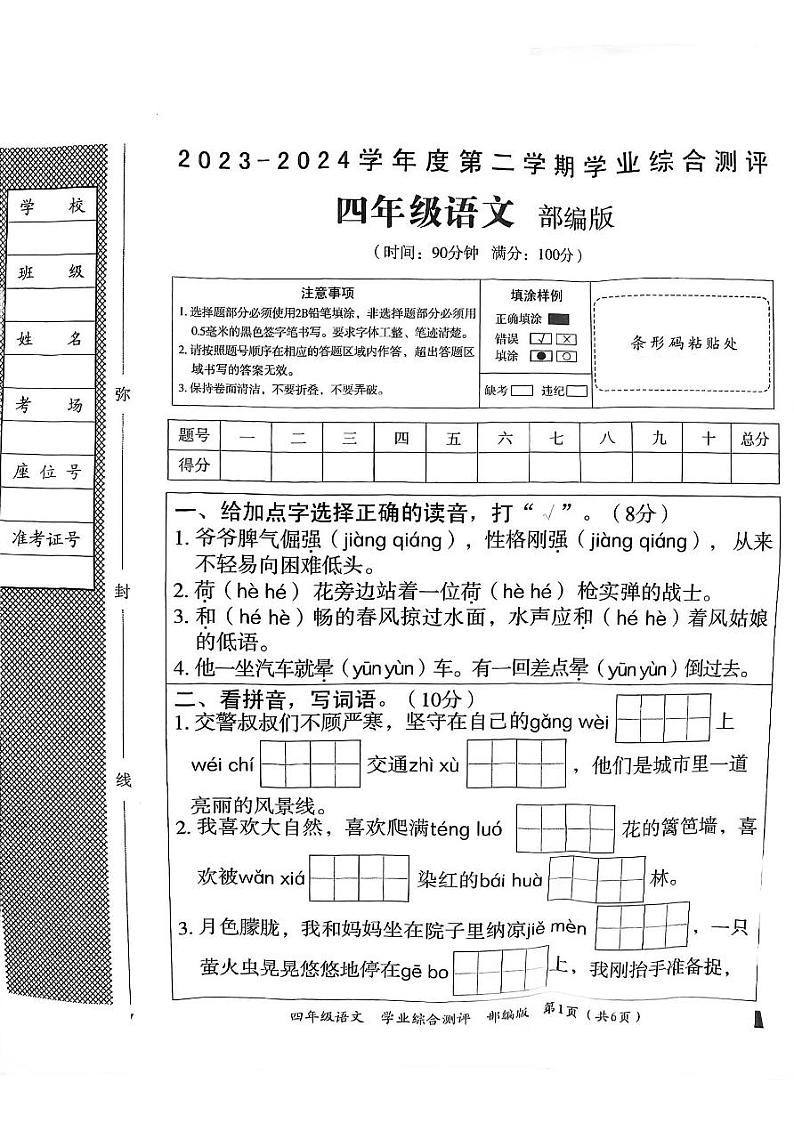 2023-2024学年度第二学期学业综合测评
四年级语文 部编版
（时间：90分钟 满分：100分）
学 校
班 级
姓 名
考 场
座 位 号
准考证号
弥
封
线
注意事项
1. 选择题部分必须使用2B铅笔填涂，非选择题部分必须用
0.5毫米的黑色签字笔书写。要求字体工整、笔迹清楚。
2. 请按照题号顺序在相应的答题区域内作答，超出答题区
域书写的答案无效。
3. 保持卷面清洁，不要折叠，不要弄破。
填涂样例
正确填涂
错误
填涂
缺考 违纪
条形码粘贴处
题号 一 二 三 四 五 六 七 八 九 十 总分
得分
一、给加点字选择正确的读音，打“√”。（8分）
1. 爷爷脾气倔强（jiàng qiáng），性格刚强（jiàng qiáng），从来
不轻易向困难低头。
2. 荷（hè hé）花旁边站着一位荷（hè hé）枪实弹的战士。
3. 和（hé hè）畅的春风掠过水面，水声应和（hé hè）着风姑娘
的低语。
4. 他一坐汽车就晕（yūn yùn）车。有一回差点晕（yūn yùn）倒过去。
二、看拼音，写词语。（10分）
1. 交警叔叔们不顾严寒，坚守在自己的gǎng wèi 上
wéi chí 交通zhì xù ，他们是城市里一道
亮丽的风景线。
2. 我喜欢大自然，喜欢爬满téng luó 花的篱笆墙，喜
欢被wǎn xiá 染红的bái huà 林。
3. 月色朦胧，我和妈妈坐在院子里纳凉jiě mèn ，一只
萤火虫晃晃悠悠地停在gē bo 上，我刚抬手准备捉，
四年级语文 学业综合测评 部编版 第1页（共6页）